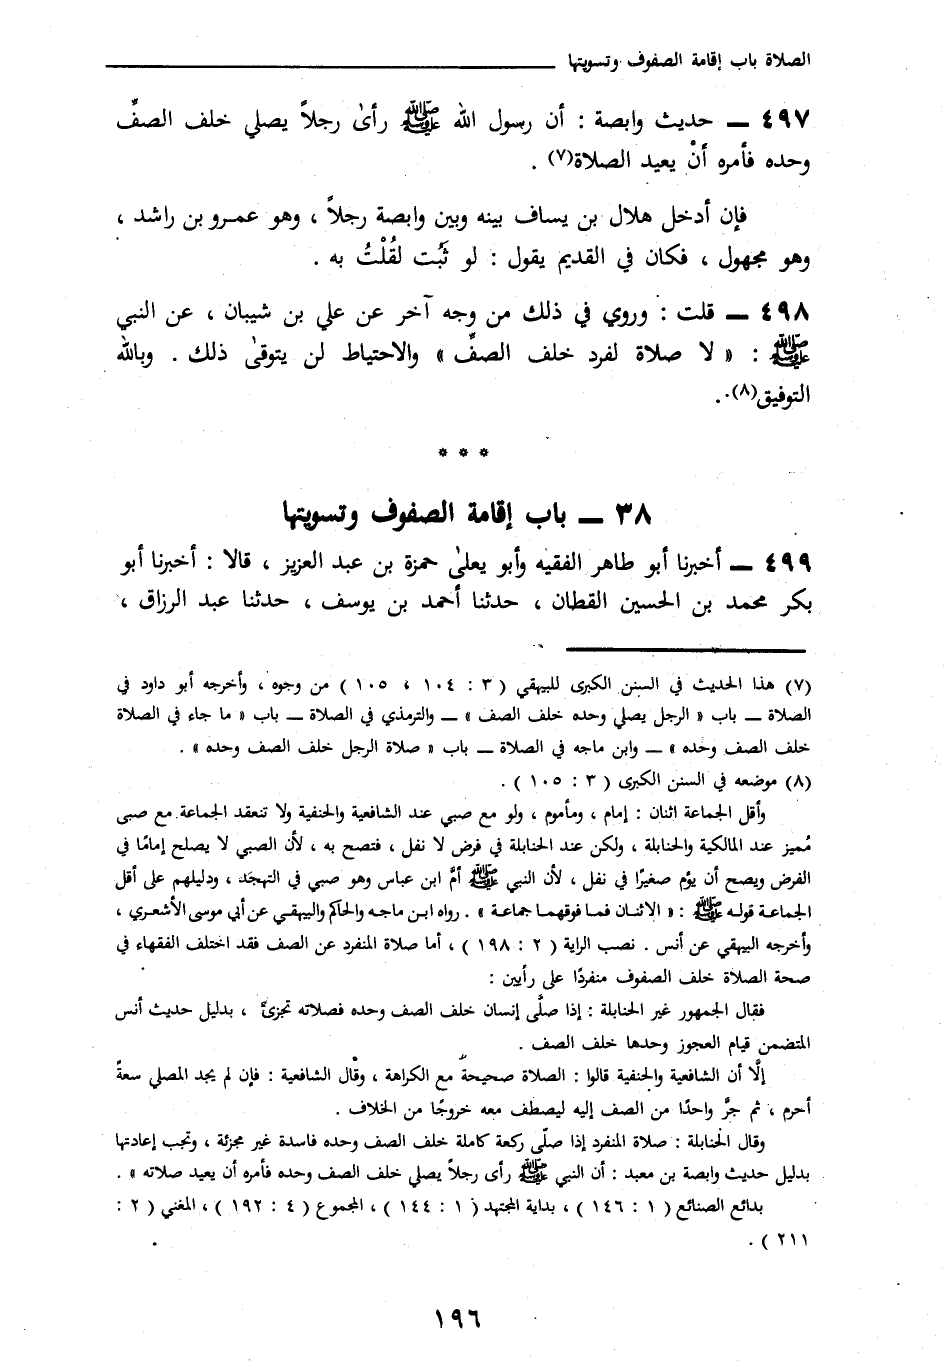 الصلاة باب إقامة الصفوف وتسويتها
٤٩٧ ــ حديث وابصة : أن رسول الله ﷺ رأىٰ رجلاً يصلي خلف الصفِّ
وحده فأمره أنْ يعيد الصلاة(٧) .
فإن أدخل هلال بن يساف بينه وبين وابصة رجلاً ، وهو عمرو بن راشد ،
وهو مجهول ، فكان في القديم يقول : لو ثَبُت لقُلْتُ به .
٤٩٨ ــ قلت : وروي في ذلك من وجه آخر عن علي بن شيبان ، عن النبي
ﷺ : « لا صلاة لفرد خلف الصفِّ » والاحتياط لن يتوقىٰ ذلك . وبالله
التوفيق(٨).
* * *
٣٨ ــ باب إقامة الصفوف وتسويتها
٤٩٩ ــ أخبرنا أبو طاهر الفقيه وأبو يعلىٰ حمزة بن عبد العزيز ، قالا : أخبرنا أبو
بكر محمد بن الحسين القطان ، حدثنا أحمد بن يوسف ، حدثنا عبد الرزاق ،
(٧) هذا الحديث في السنن الكبرى للبيهقي ( ٣ : ١٠٤ ، ١٠٥ ) من وجوه ، وأخرجه أبو داود في
الصلاة ــ باب « الرجل يصلي وحده خلف الصف » ــ والترمذي في الصلاة ــ باب « ما جاء في الصلاة
خلف الصف وحده » ــ وابن ماجه في الصلاة ــ باب « صلاة الرجل خلف الصف وحده » .
(٨) موضعه في السنن الكبرى ( ٣ : ١٠٥ ) .
وأقل الجماعة اثنان : إمام ، ومأموم ، ولو مع صبي عند الشافعية والحنفية ولا تنعقد الجماعة مع صبى
مُميز عند المالكية والحنابلة ، ولكن عند الحنابلة في فرض لا نفل ، فتصح به ، لأن الصبي لا يصلح إمامًا في
الفرض ويصح أن يؤم صغيرًا في نفل ، لأن النبي ﷺ أمَّ ابن عباس وهو صبي في التهجد ، ودليلهم على أقل
الجماعة قوله ﷺ : « الاثنان فما فوقهما جماعة » . رواه ابن ماجه والحاكم والبيهقي عن أبي موسى الأشعري ،
وأخرجه البيهقي عن أنس . نصب الراية ( ٢ : ١٩٨ ) ، أما صلاة المنفرد عن الصف فقد اختلف الفقهاء في
صحة الصلاة خلف الصفوف منفردًا على رأيين :
فقال الجمهور غير الحنابلة : إذا صلَّى إنسان خلف الصف وحده فصلاته تجزئ ، بدليل حديث أنس
المتضمن قيام العجوز وحدها خلف الصف .
إلَّا أن الشافعية والحنفية قالوا : الصلاة صحيحة مع الكراهة ، وقال الشافعية : فإن لم يجد المصلي سعةً
أحرم ، ثم جرَّ واحدًا من الصف إليه ليصطف معه خروجًا من الخلاف .
وقال الحنابلة : صلاة المنفرد إذا صلّى ركعة كاملة خلف الصف وحده فاسدة غير مجزئة ، وتجب إعادتها
بدليل حديث وابصة بن معبد : أن النبي ﷺ رأى رجلاً يصلي خلف الصف وحده فأمره أن يعيد صلاته » .
بدائع الصنائع ( ١ : ١٤٦ ) ، بداية المجتهد ( ١ : ١٤٤ ) ، المجموع ( ٤ : ١٩٢ ) ، المغني ( ٢ :
٢١١ ) .
١٩٦